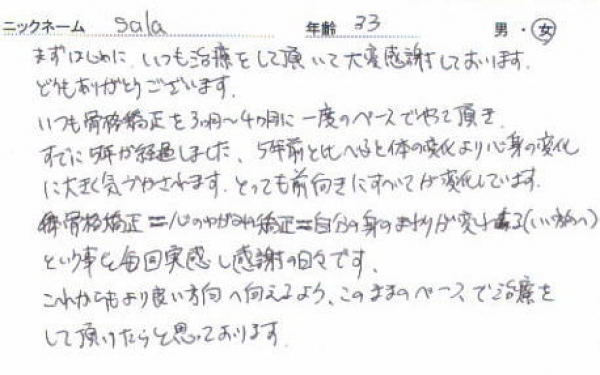 ニックネーム sala 年齢 33 男・女
まずはじめに、いつも治療をして頂いて大変感謝しております。
どうもありがとうございます。
いつも骨格矯正を3ヶ月〜4ヶ月に一度のペースでやって頂き
すでに5年が経過しました、5年前と比べると体の変化より心身の変化
に大きく気づかされます。とっても前向きにすべてが変化しています。
骨格矯正=心のゆがみ矯正=自分の身のまわりが変わる(いい方へ)
という事を毎回実感し感謝の日々です、
これからもより良い方向へ向えるよう、このままのペースで治療を
して頂けたらと思っております。